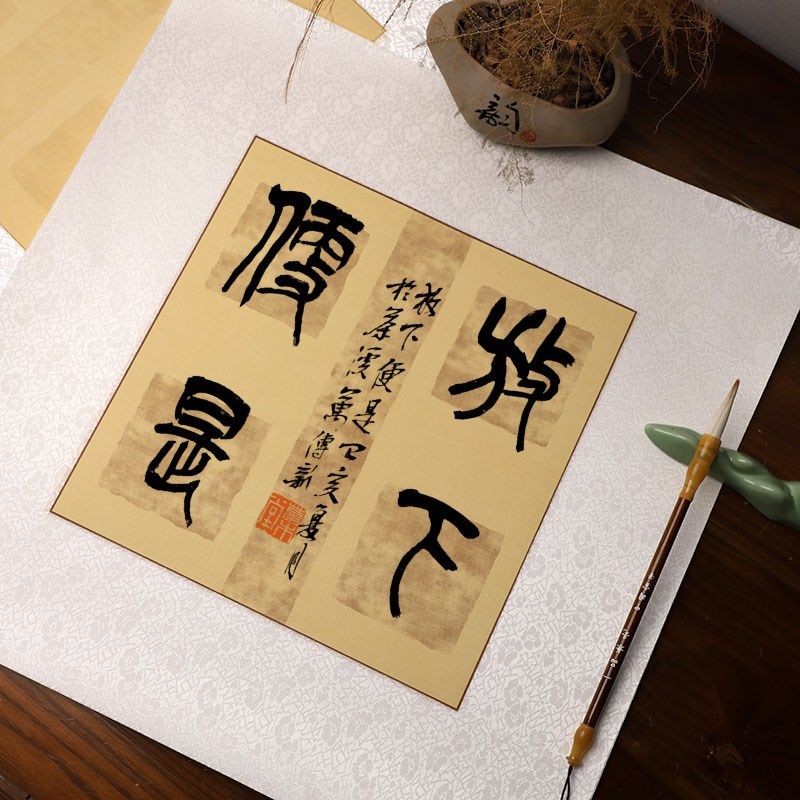 放下
便是
放下便是己亥夏月
於萬傳新
韵